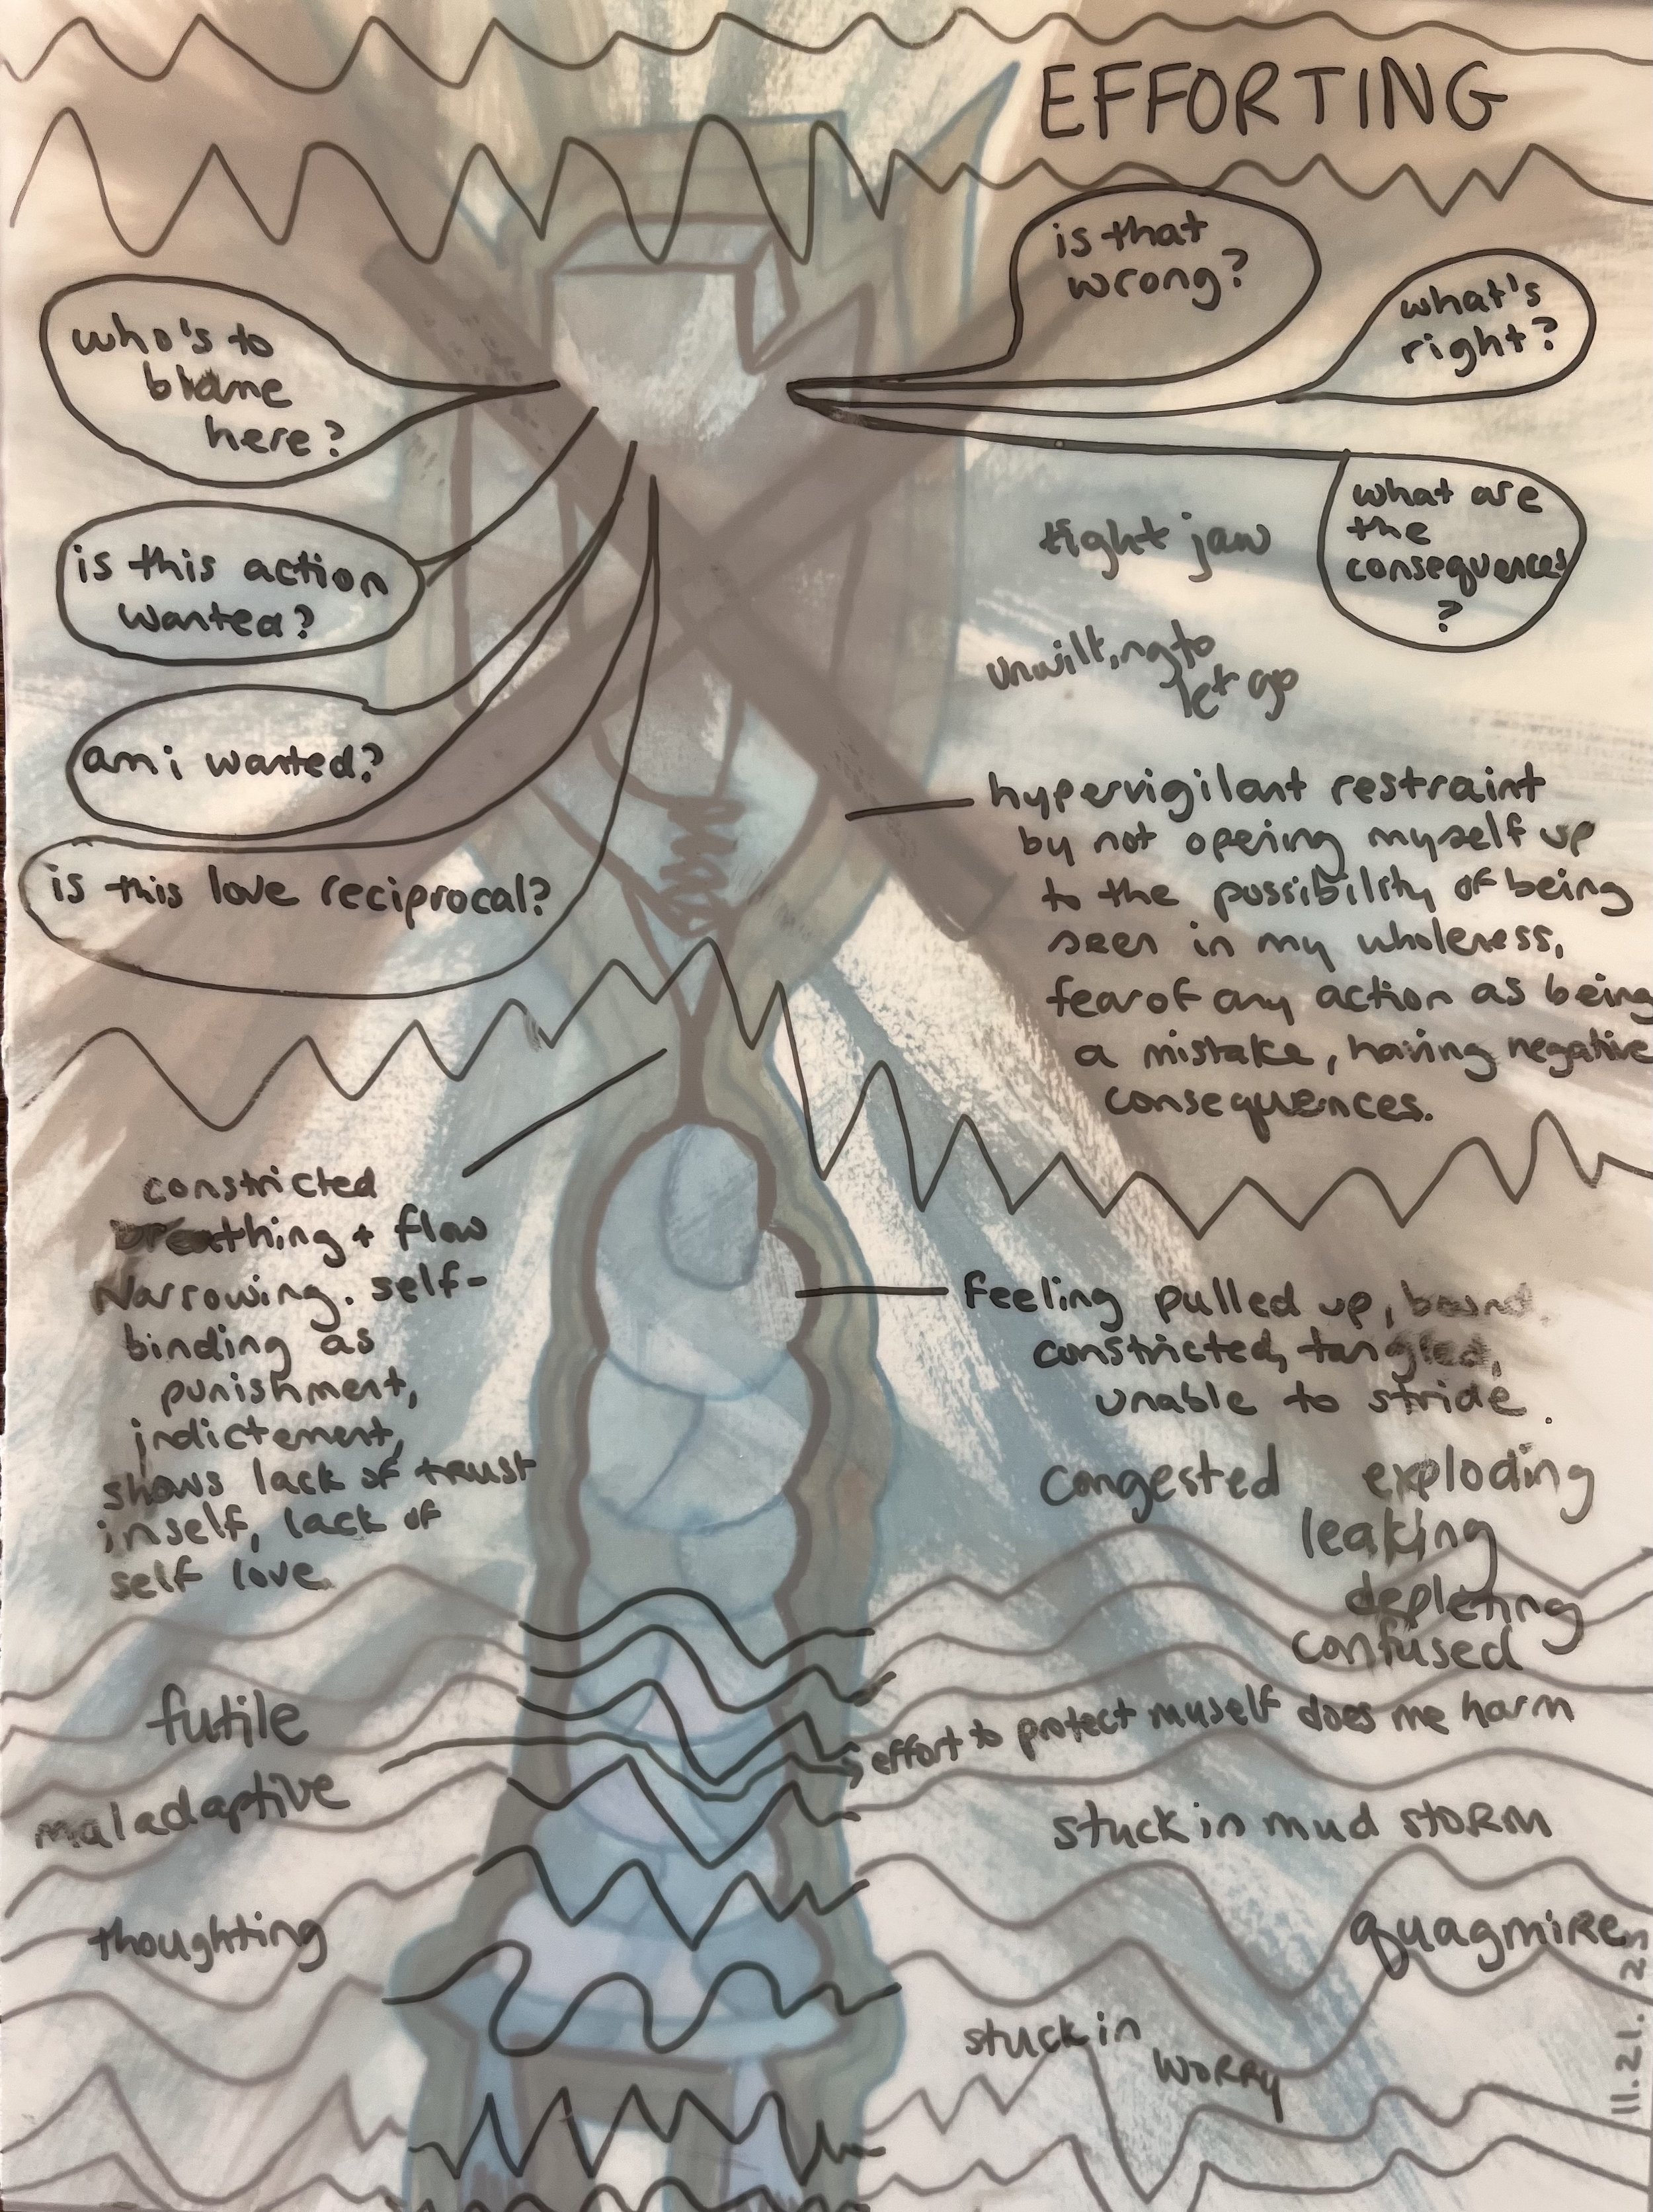 EFFORTING
is that
wrong?
what's
right?
who's to
blame
here?
what are
the
consequences
?
is this action
wanted?
tight jaw
unwilling to
let go
am i wanted?
is this love reciprocal?
hypervigilant restraint
by not opening myself up
to the possibility of being
seen in my wholeness,
fear of any action as being
a mistake, having negative
consequences.
constricted
breathing + flow
Narrowing. self-
binding as
punishment,
indictement,
shows lack of trust
in self, lack of
self love
Feeling pulled up, bound,
constricted, tangled,
unable to stride.
congested
exploding
leaking
depleting
confused
effort to protect muself does me harm
futile
maladaptive
thoughting
stuck in mud stoRM
quagmiRe
stuck in
WORRy
11.21.23